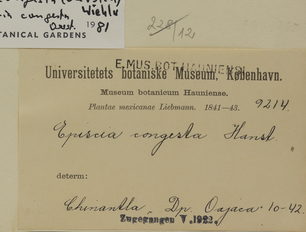 congesta
Wiehler
congesta
det. 1981
TANICAL GARDENS
228/12
E MUS. BOT. HAUNIENSI
Universitetets botaniske Museum, København.
Museum botanicum Hauniense.
Plantae mexicanae Liebmann. 1841—43.
9214.
Episcia congesta Hanst.
determ:
Chinantla, Dp. Oajaca 10-42.
Zugegangen V. 1922.